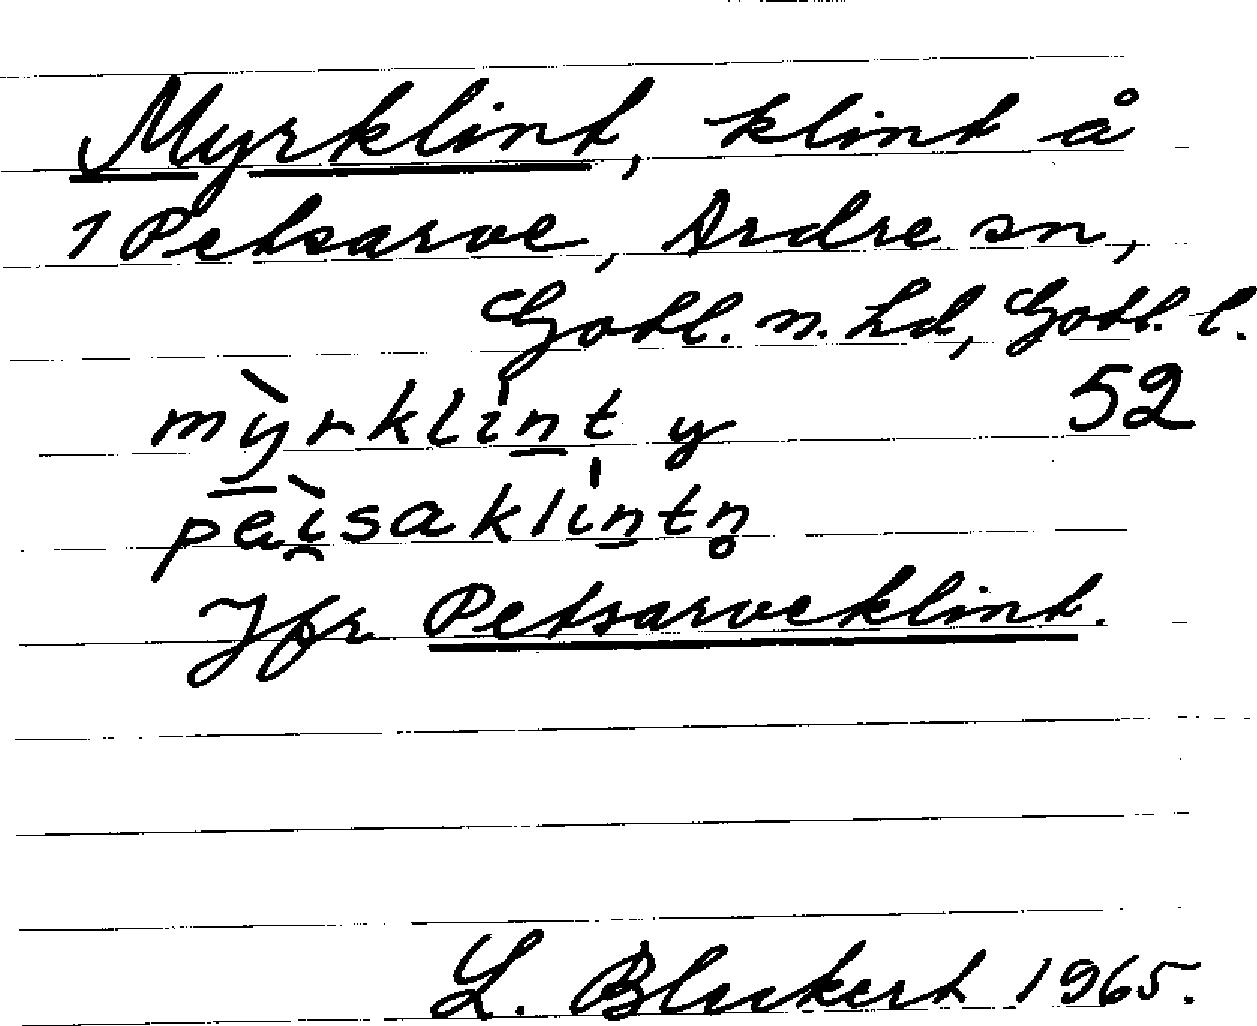 Myrklint, klint å
1 Petsarve, Ardre sn,
Gotl. n. hd, Gotl. l.
52
mỳrklint y
pèisaklintn̥
Jfr Petsarveklint.
L. Bleckert 1965.